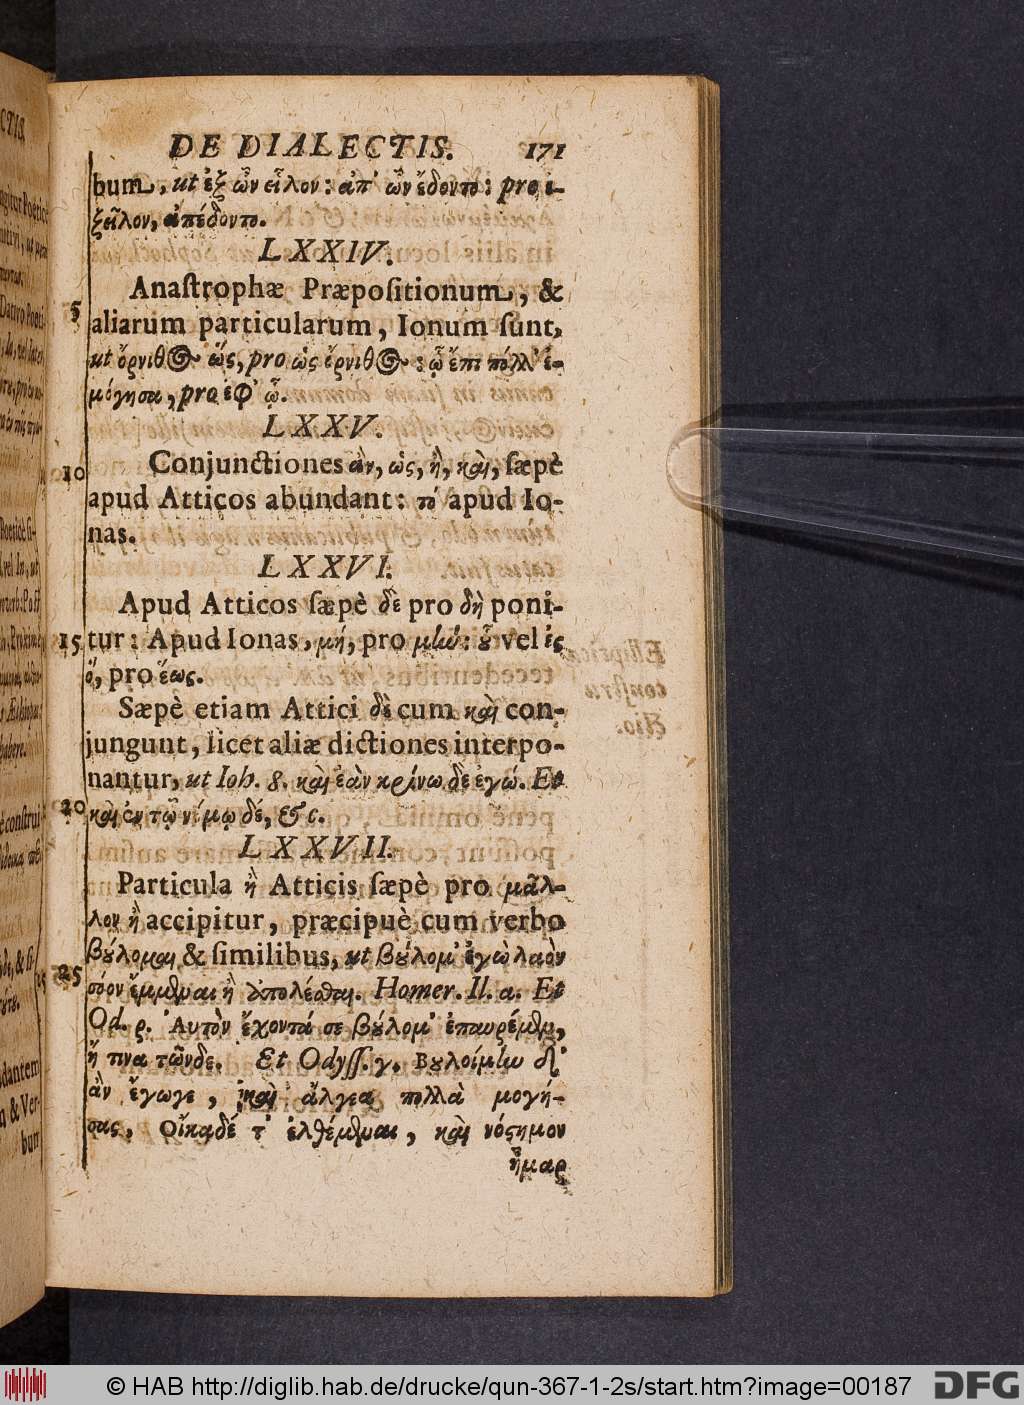 DE DIALECTIS. 171
bum, ut ἐξ ὦν εἷλον: ἀπ' ὦν ἔδοντο: pro ἐ-
ξεῖλον, ἀπέδοντο.
LXXIV.
Anaſtrophæ Præpoſitionum, &
5 aliarum particularum, Ionum ſunt,
ut ὄρνιθος ὥς, pro ὡς ὄρνιθος: ᾧ ἔπι πόλλ' ἐ-
μόγησα, pro ἐφ' ᾧ.
LXXV.
10 Conjunctiones ἂν, ὡς, ἢ, καὶ, ſæpè
apud Atticos abundant: τό apud Io-
nas.
LXXVI.
Apud Atticos ſæpè δὲ pro δὴ poni-
15 tur: Apud Ionas, μή, pro μὴν: οὗ vel ἐς
ὅ, pro ἕως.
Sæpè etiam Attici δὲ cum καὶ con-
jungunt, licet aliæ dictiones interpo-
nantur, ut Ioh. 8. καὶ ἐὰν κρίνω δὲ ἐγώ. Et
20 καὶ ἐν τῷ νόμῳ δέ, &c.
LXXVII.
Particula ἢ Atticis ſæpè pro μᾶλ-
λον ἢ accipitur, præcipuè cum verbo
βούλομαι & ſimilibus, ut βούλομ' ἐγὼ λαὸν
25 σόον ἔμμεναι ἢ ἀπολέσθαι. Homer. Il. α. Et
Od. ρ. Αὐτὸν ἔχοντά σε βούλομ' ἐπαυρέμεν,
ἤ τινα τῶνδε. Et Odyſſ. γ. Βουλοίμην δ'
ἂν ἔγωγε, καὶ ἄλγεα πολλὰ μογή-
σας, Οἴκαδέ τ' ἐλθέμεναι, καὶ νόστιμον
ἦμαρ
CTIS.
bum
© HAB http://diglib.hab.de/drucke/qun-367-1-2s/start.htm?image=00187 DFG